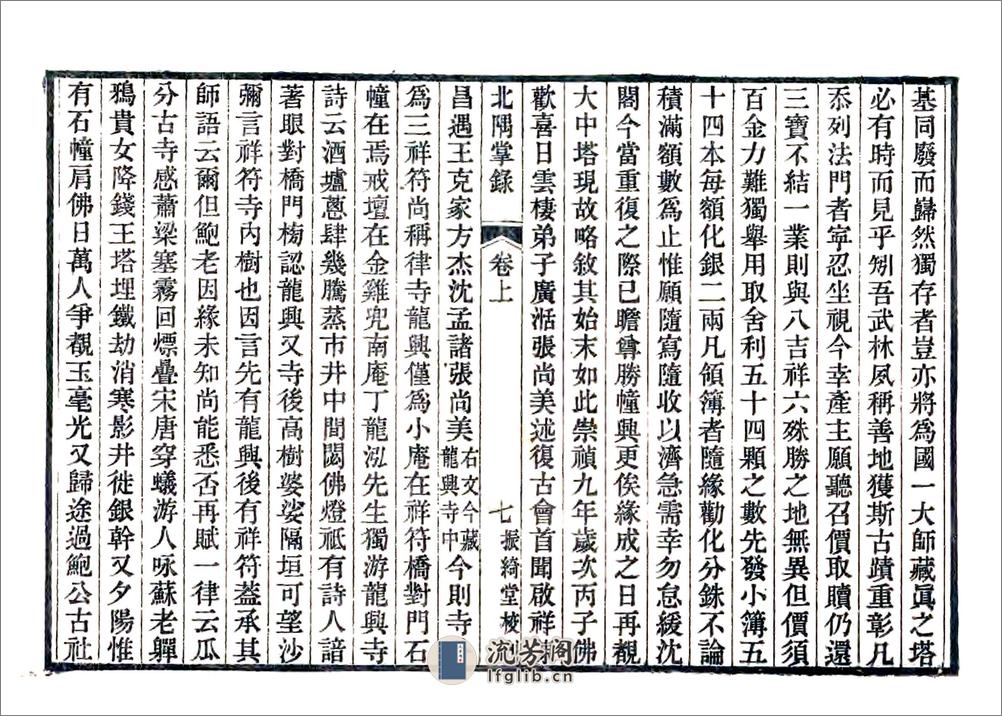 基同廢而巋然獨存者豈亦將爲國一大師藏眞之塔
必有時而見乎矧吾武林夙稱善地獲斯古蹟重彰凡
忝列法門者寧忍坐視今幸產主願聽召價取贖仍還
三寶不結一業則與八吉祥六殊勝之地無異但價須
百金力難獨舉用取舍利五十四顆之數先發小簿五
十四本每額化銀二兩凡領簿者隨緣勸化分銖不論
積滿額數爲止惟願隨寫隨收以濟急需幸勿怠緩沈
閣今當重復之際已瞻尊勝幢興更俟緣成之日再覩
大中塔現故略敘其始末如此崇禎九年歲次丙子佛
歡喜日雲棲弟子廣湉張尚美述復古會首聞啟祥
北隅掌錄 卷上 七 振綺堂校
昌遇王克家方杰沈孟諸張尚美右文今藏龍興寺中今則寺
爲三祥符尚稱律寺龍興僅爲小庵在祥符橋對門石
幢在焉戒壇在金雞兜南庵丁龍泓先生獨游龍興寺
詩云酒壚蔥肆幾騰蒸市井中間閟佛燈祗有詩人諳
著眼對橋門榜認龍興又寺後高樹婆娑隔垣可望沙
彌言祥符寺內樹也因言先有龍興後有祥符蓋承其
師語云爾但鮑老因緣未知尚能悉否再賦一律云瓜
分古寺感蕭梁塞霧回熛疊宋唐穿蟻游人咏蘇老躲
鴉貴女降錢王塔埋鐵劫消寒影井徙銀幹又夕陽惟
有石幢肩佛日萬人爭覩玉毫光又歸途過鮑公古社
流芳閣
lfglib.cn